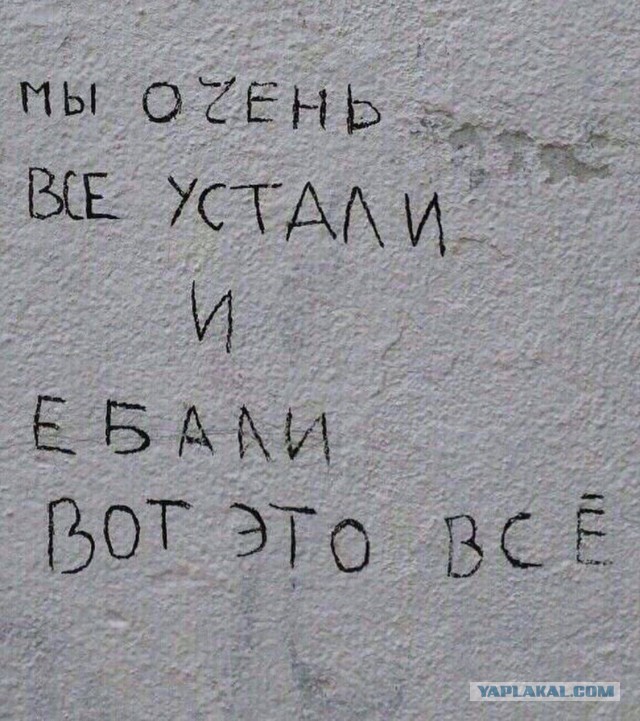 МЫ ОЧЕНЬ
ВСЕ УСТАЛИ
И
ЕБАЛИ
ВОТ ЭТО ВСЁ
YAPLAKAL.COM